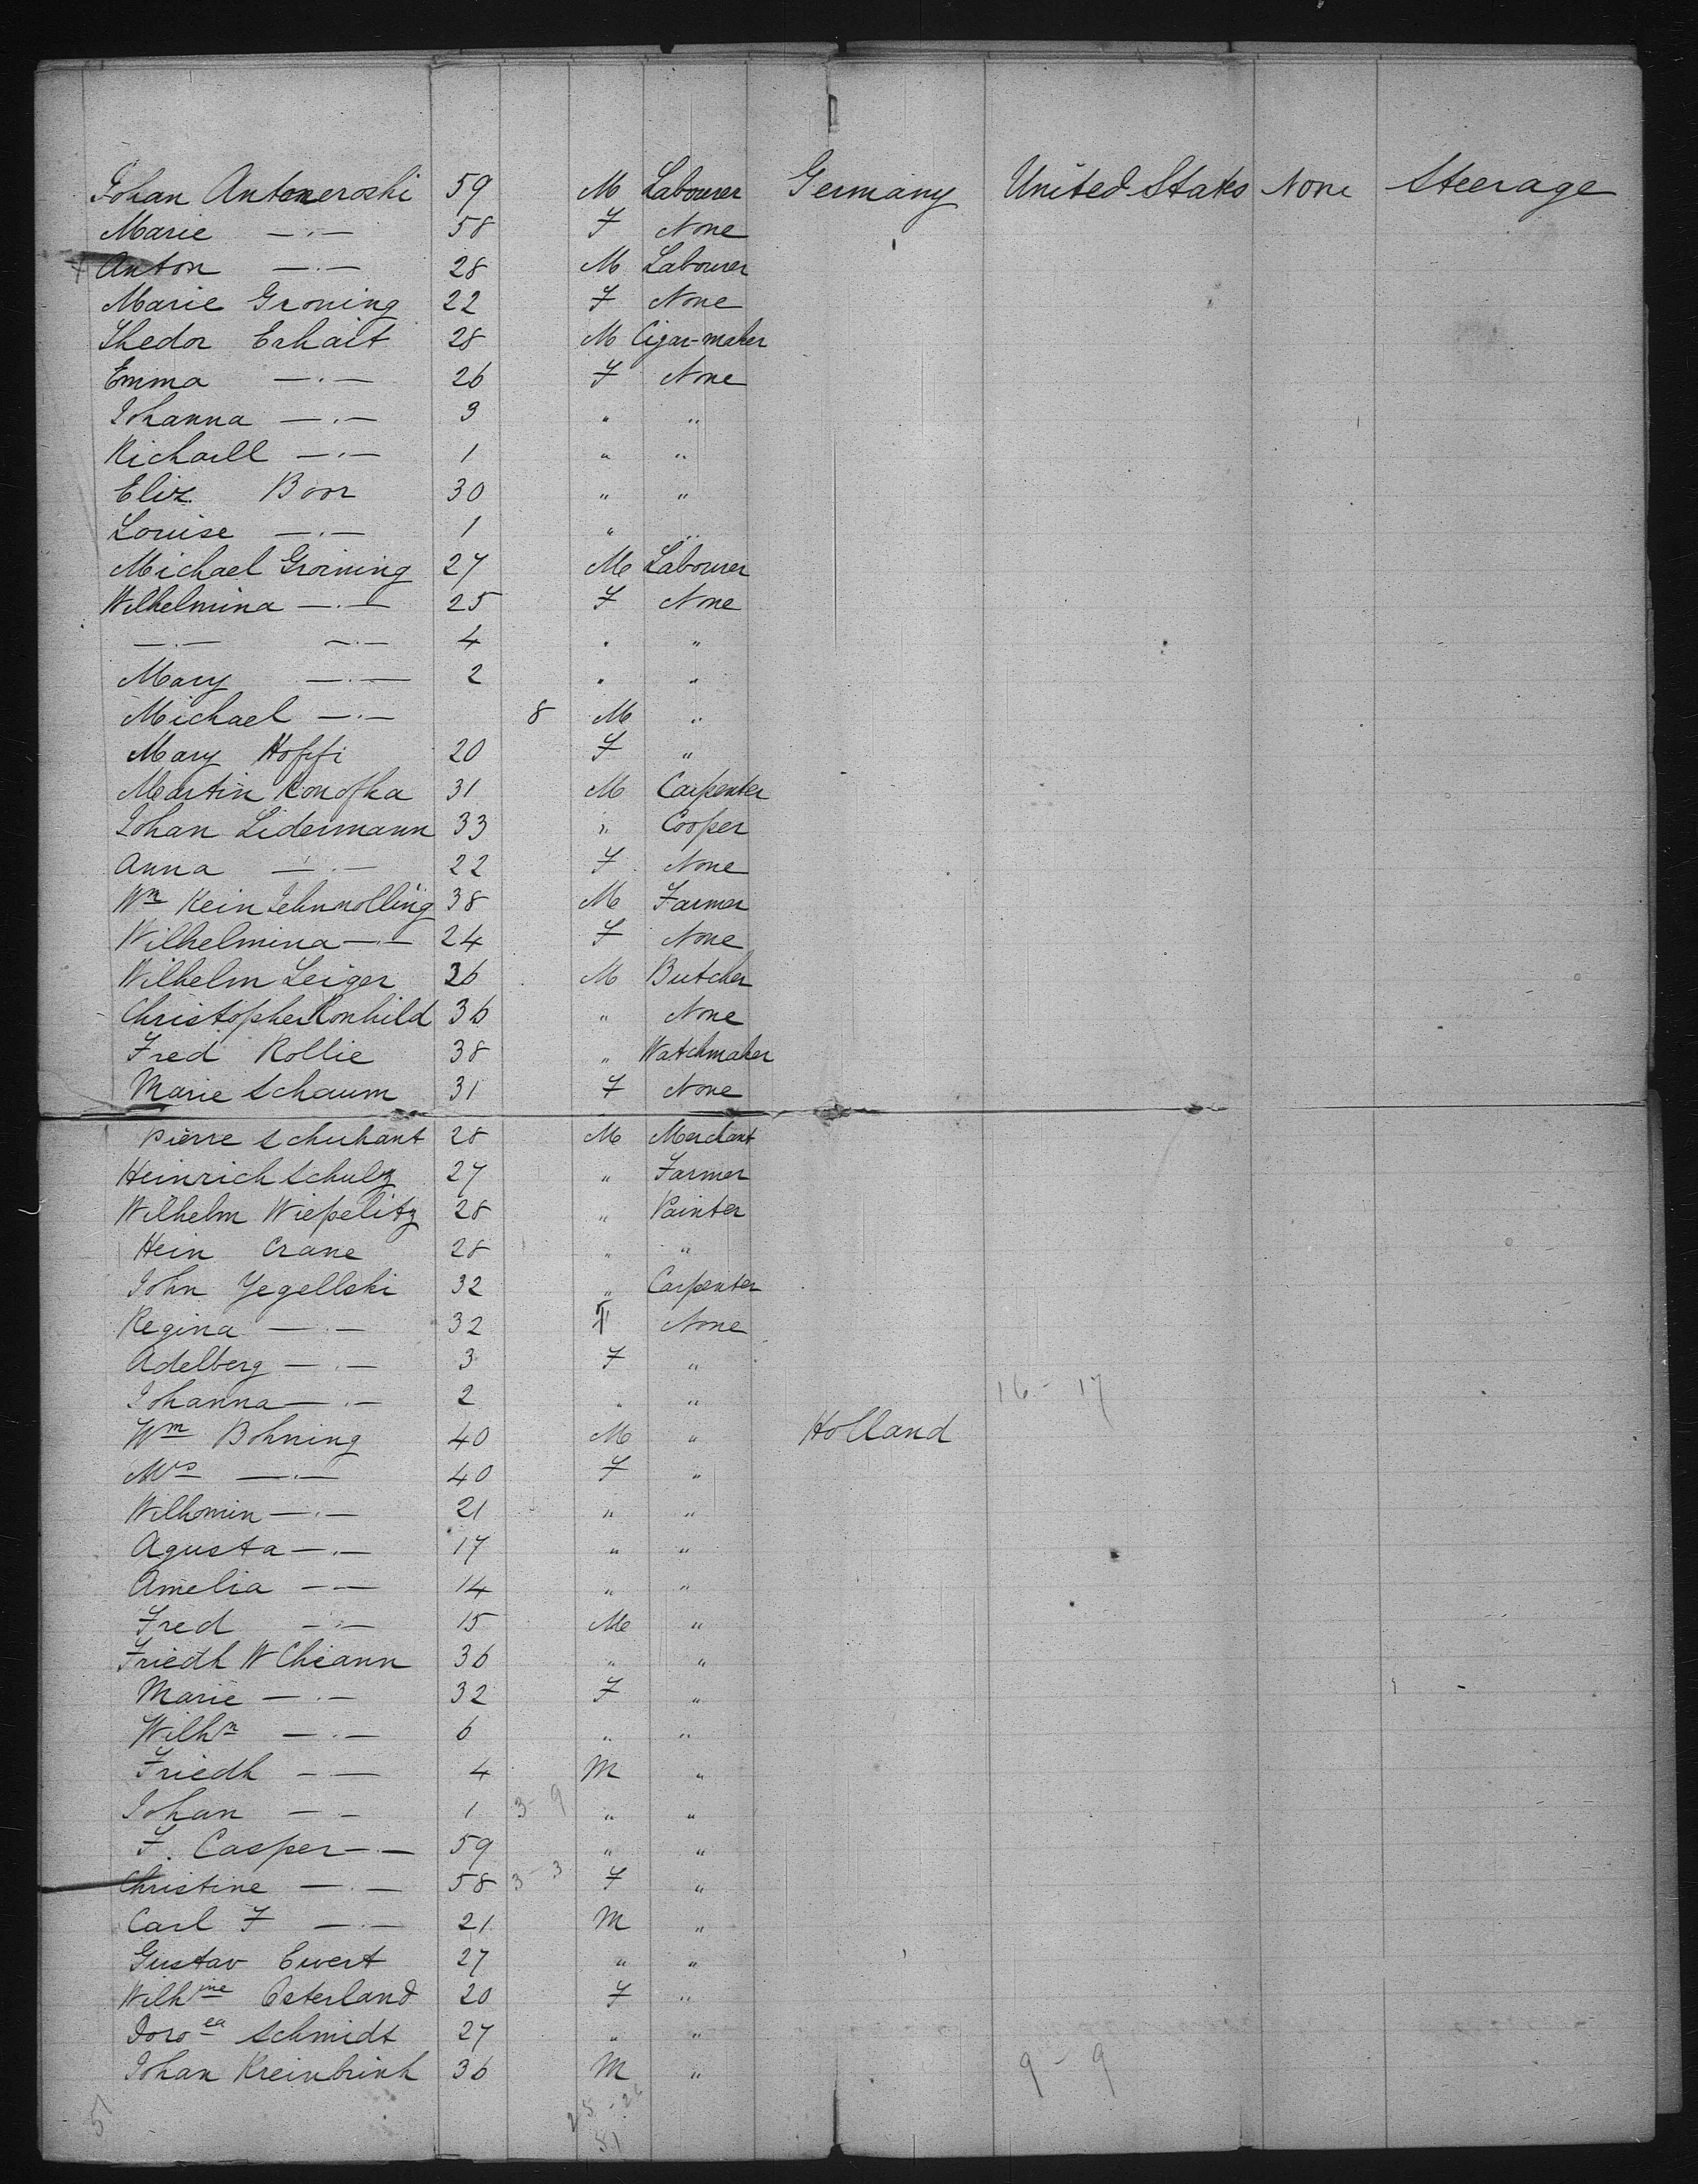 Johan Antoneroski 59 M Labourer Germany United States None Steerage
Marie —.— 58 F None
Anton —.— 28 M Labourer
Marie Groning 22 F None
Thedor Erhait 28 M Cigar-maker
Emma —.— 26 F None
Johanna —.— 3 " "
Richaill —.— 1 " "
Eliz. Boor 30 " "
Louise —.— 1 " "
Michael Groining 27 M Labourer
Wilhelmina —.— 25 F None
—.— —.— 4 " "
Mary —.— 2 " "
Michael —.— 8 M "
Mary Hoffi 20 F "
Martin Konofka 31 M Carpenter
Johan Lidermann 33 " Cooper
Anna —.— 22 F None
Wm Kein 38 M Farmer
Wilhelmina —.— 24 F None
Wilhelm Leiger 36 M Butcher
Christopher Ronhild 36 " None
Fred Rollie 38 " Watchmaker
Marie Schaum 31 F None
Pierre Schuhant 28 M Merchant
Heinrich Schulz 27 " Farmer
Wilhelm Wiepelitz 28 " Painter
Hein Crane 28 " "
John Yegellski 32 " Carpenter
Regina —.— 32 F None
Adelberg —.— 3 F "
Johanna —.— 2 " "
16 - 17
Wm Bohning 40 M " Holland
Mrs —.— 40 F "
Wilhomin —.— 21 " "
Agusta —.— 17 " "
Amelia —.— 14 " "
Fred —.— 15 M "
Friedh W Chiann 36 " "
Marie —.— 32 F "
Wilhn —.— 6 " "
Friedh —.— 4 M "
Johan —.— 1 3 - 9 " "
F. Casper —.— 59 " "
Christine —.— 58 3 - 3 F "
Carl F —.— 21 M "
Gustav Ewert 27 " "
Wilhine Osterland 20 F "
Doroea Schmidt 27 " "
Johan Kreinbrink 36 M "
9 - 9
51
25 - 26
51